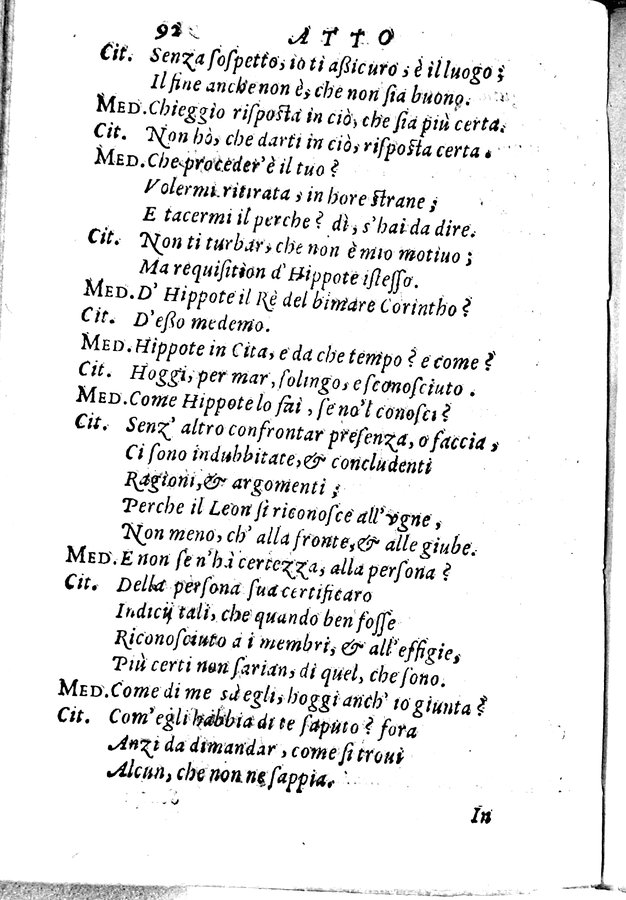 92 ATTO
Cit. Senza ſoſpetto, io ti aßicuro, è il luogo;
Il fine anche non è, che non ſia buono.
MED. Chieggio riſpoſta in ciò, che ſia più certa.
Cit. Non hò, che darti in ciò, riſpoſta certa.
MED. Che proceder' è il tuo?
Volermi ritirata, in hore ſtrane;
E tacermi il perche? dì, s'hai da dire.
Cit. Non ti turbar, che non è mio motiuo;
Ma requiſition d' Hippote iſteſſo.
MED. D' Hippote il Rè del bimare Corintho?
Cit. D'eßo medemo.
MED. Hippote in Cita, e da che tempo? e come?
Cit. Hoggi, per mar, ſolingo, e ſconoſciuto.
MED. Come Hippote lo fai, ſe no'l conoſci?
Cit. Senz' altro confrontar preſenza, o faccia,
Ci ſono indubbitate, & concludenti
Ragioni, & argomenti;
Perche il Leon ſi riconoſce all' vgne,
Non meno, ch' alla fronte, & alle giube.
MED. E non ſe n'hà certezza, alla perſona?
Cit. Della perſona ſua certificaro
Indicij tali, che quando ben foſſe
Riconoſciuto a i membri, & all'effigie,
Più certi non ſarian, di quel, che ſono.
MED. Come di me sà egli, hoggi anch' io giunta?
Cit. Com' egli habbia di te ſaputo? fora
Anzi da dimandar, come ſi troui
Alcun, che non ne ſappia.
In